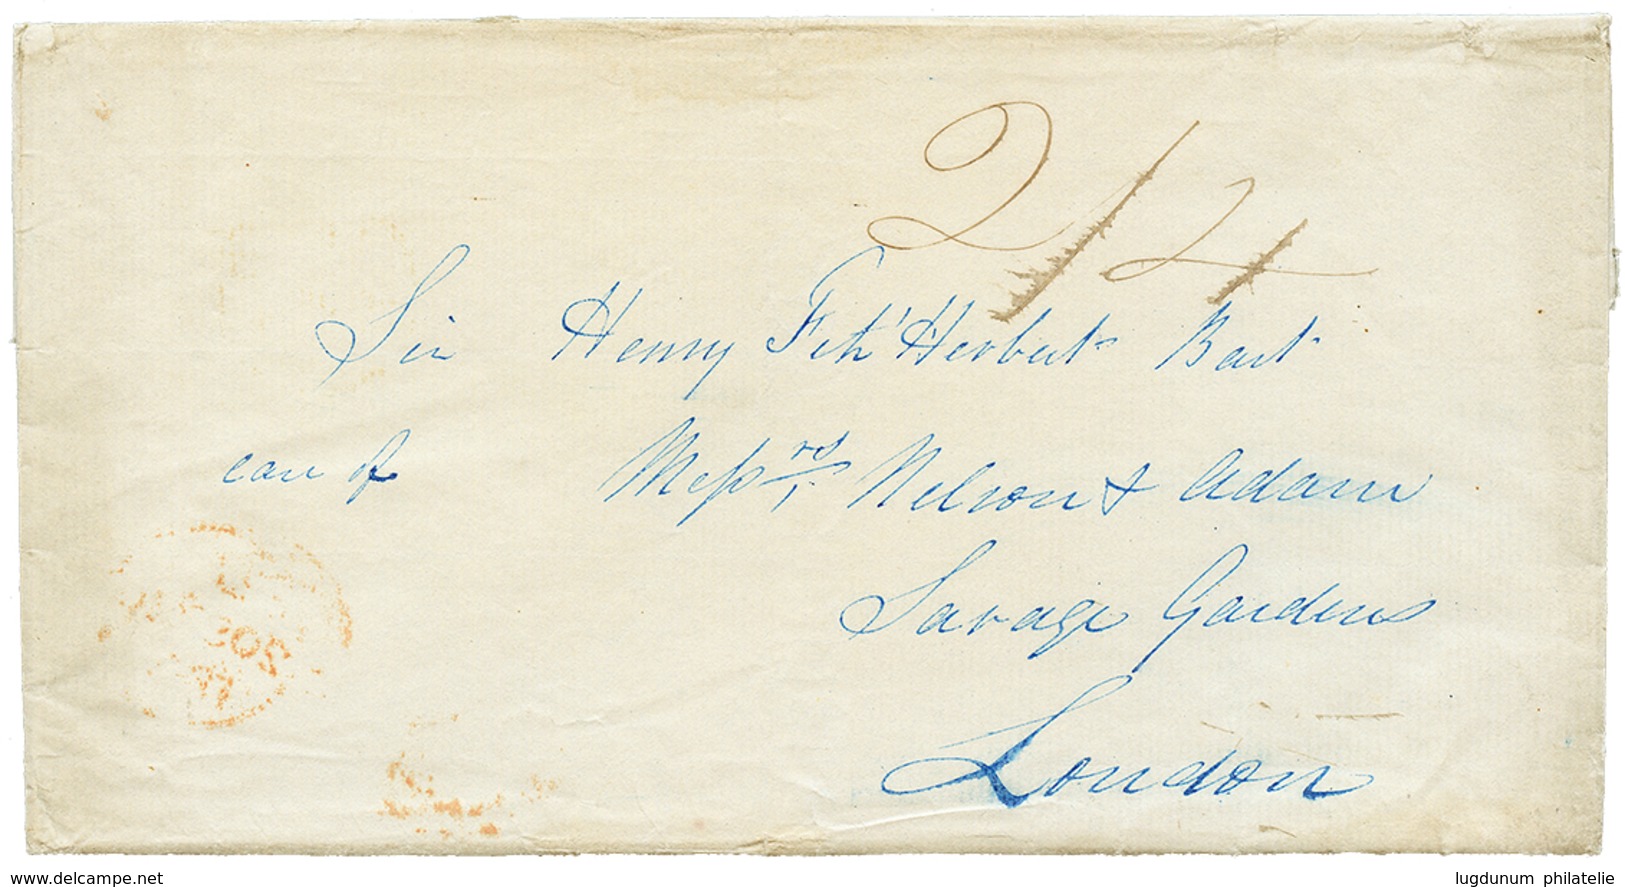 2/4
Sir Henry Fitz'Herbert Bart
care of Messrs Nelson & Adam
Savage Gardens
London
www.delcampe.net
lugdunum philatelie